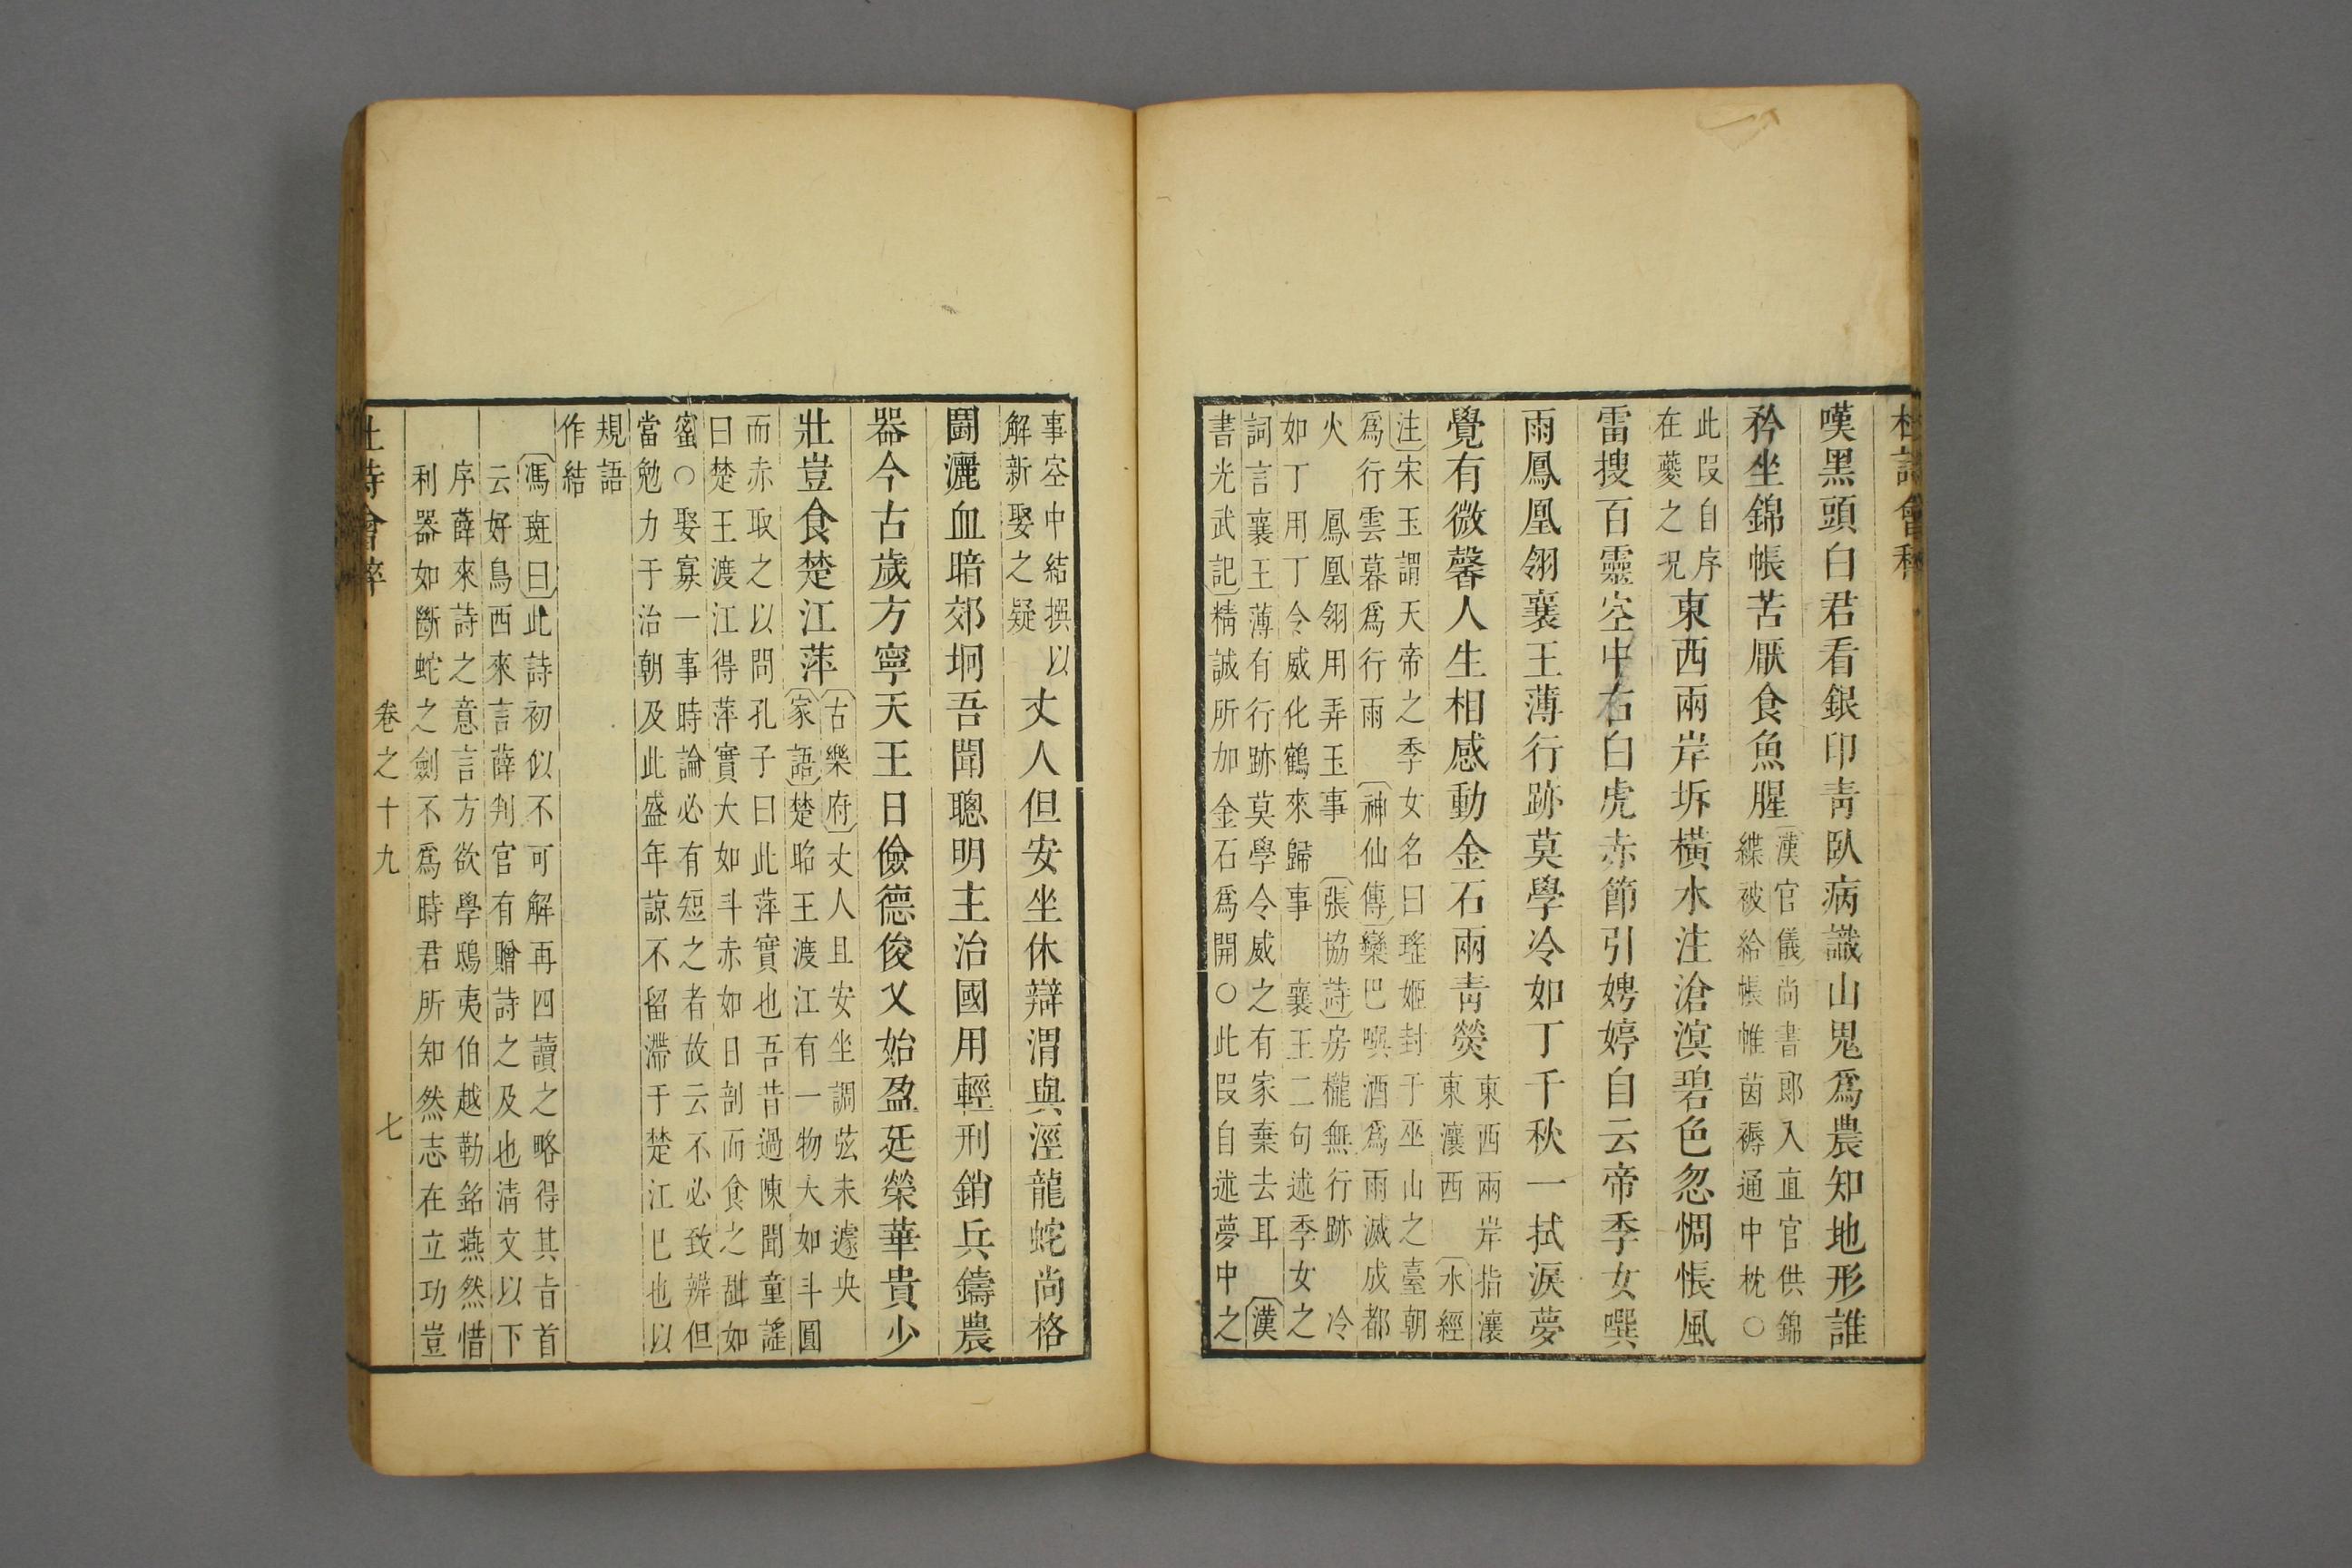 杜詩會稡
嘆黑頭白君看銀印青臥病識山鬼爲農知地形誰
矜坐錦帳苦厭食魚腥
漢官儀尚書郎入直官供錦
緤被給帳帷茵褥通中枕○
此叚自序
在夔之況
東西兩岸坼橫水注滄溟碧色忽惆悵風
雷搜百靈空中右白虎赤節引娉婷自云帝季女噀
雨鳳凰翎襄王薄行跡莫學冷如丁千秋一拭淚夢
覺有微馨人生相感動金石兩青熒
東西兩岸指瀼
東瀼西 水經
注宋玉謂天帝之季女名曰瑤姬封于巫山之臺朝
爲行雲暮爲行雨 神仙傳欒巴噀酒爲雨滅成都
火 鳳凰翎用弄玉事 張協詩房櫳無行跡 冷
如丁用丁令威化鶴來歸事 襄王二句述季女之
詞言襄王薄有行跡莫學令威之有家棄去耳 漢
書光武記精誠所加金石爲開○此叚自述夢中之
事空中結撰以
解新娶之疑
丈人但安坐休辯渭與涇龍蛇尚格
鬭灑血暗郊坰吾聞聰明主治國用輕刑銷兵鑄農
器今古歲方寧天王日儉德俊乂始盈廷榮華貴少
壯豈食楚江萍
古樂府丈人且安坐調弦未遽央
家語楚昭王渡江有一物大如斗圓
而赤取之以問孔子曰此萍實也吾昔過陳聞童謠
曰楚王渡江得萍實大如斗赤如日剖而食之甜如
蜜○娶寡一事時論必有短之者故云不必致辨但
當勉力于治朝及此盛年諒不留滯于楚江巳也以
規語
作結
馮班曰此詩初似不可解再四讀之略得其旨首
云好鳥西來言薛判官有贈詩之及也淸文以下
序薛來詩之意言方欲學鴟夷伯越勒銘燕然惜
利器如斷蛇之劍不爲時君所知然志在立功豈
杜詩會稡 卷之十九 七